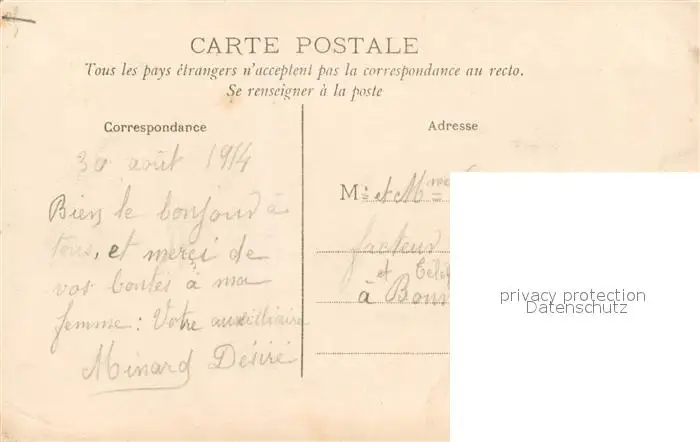 CARTE POSTALE
Tous les pays étrangers n'acceptent pas la correspondance au recto.
Se renseigner à la poste
Correspondance
30 août 1914
Bien le bonjour à
tous, et merci de
vos bontés à ma
femme : Votre auxilliaire
Minard Désiré
Adresse
M. et Mme
facteur
et Télé
à Bonn
privacy protection
Datenschutz